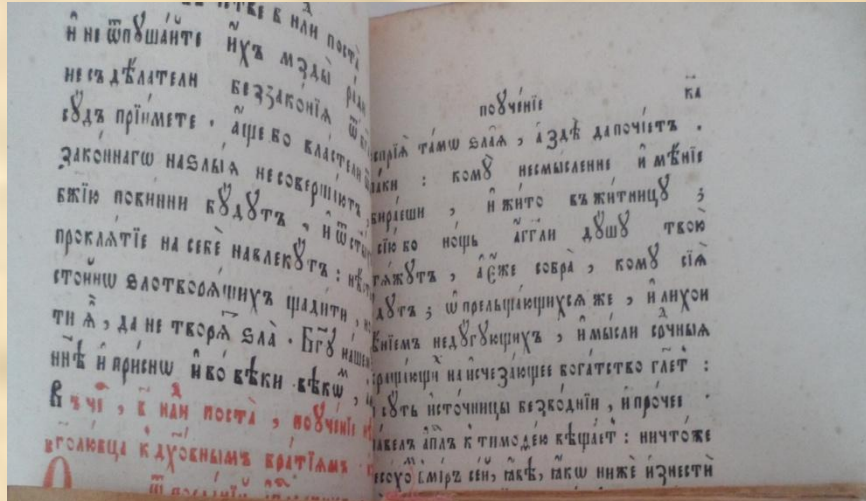 и҆ не ѿпꙋщайте и҆хъ мзды̀ ра́ди
не съдѣ́латели беззако́нїѧ
сꙋ́дъ прїи́мете . а҆́ще бо власте́ли
зако́ннагѡ на ѕлы́ѧ не соверша́ютъ ,
бж҃їю пови́нни бꙋ́дꙋтъ , и҆
проклѧ́тїе на себѐ навлекꙋ́тъ :
сто́йнѡ ѕлотворѧ́щихъ щади́ти ,
ти ѧ҆̀ , да не творѧ́тъ ѕла̀ . Бг҃ꙋ на́шемꙋ
нн҃ѣ и҆ при́снѡ и҆ во вѣ́ки вѣкѡ́въ ,
Въ че҃ , в҃ нд҃ли поста̀ , поꙋче́нїе
вголю́бца к дꙋхо́внымъ бра́тїѧмъ
поꙋче́нїе к҃а
та́мѡ ѕла́ѧ , а҆ здѣ̀ да почі́етъ .
па́ки : комꙋ̀ несмы́сленне и҆мѣ́нїе
збира́еши , и҆ жи́то въ жи́тницꙋ ;
сїю́ бо но́щь а҆́гг҃ли дꙋ́шꙋ твою̀
, а҆ є҆́же собра̀ , комꙋ̀ сїѧ̑
бꙋ́дꙋтъ ; ѡ҆ прельща́ющихсѧ же , и҆ лихои
мѣ́нїемъ недꙋ́гꙋющихъ , и҆ мы́сли ср҃чныѧ
на и҆счеза́ющее бога́тство гл҃етъ :
сꙋ́ть и҆сто́чницы безво́днїи , и҆ про́чее .
па́велъ а҆пⷭ҇лъ к тимоѳе́ю вѣща́етъ : ничто́же
в ми́ръ се́й , ꙗ҆́вѣ , ꙗ҆́кѡ нижѐ и҆знестѝ